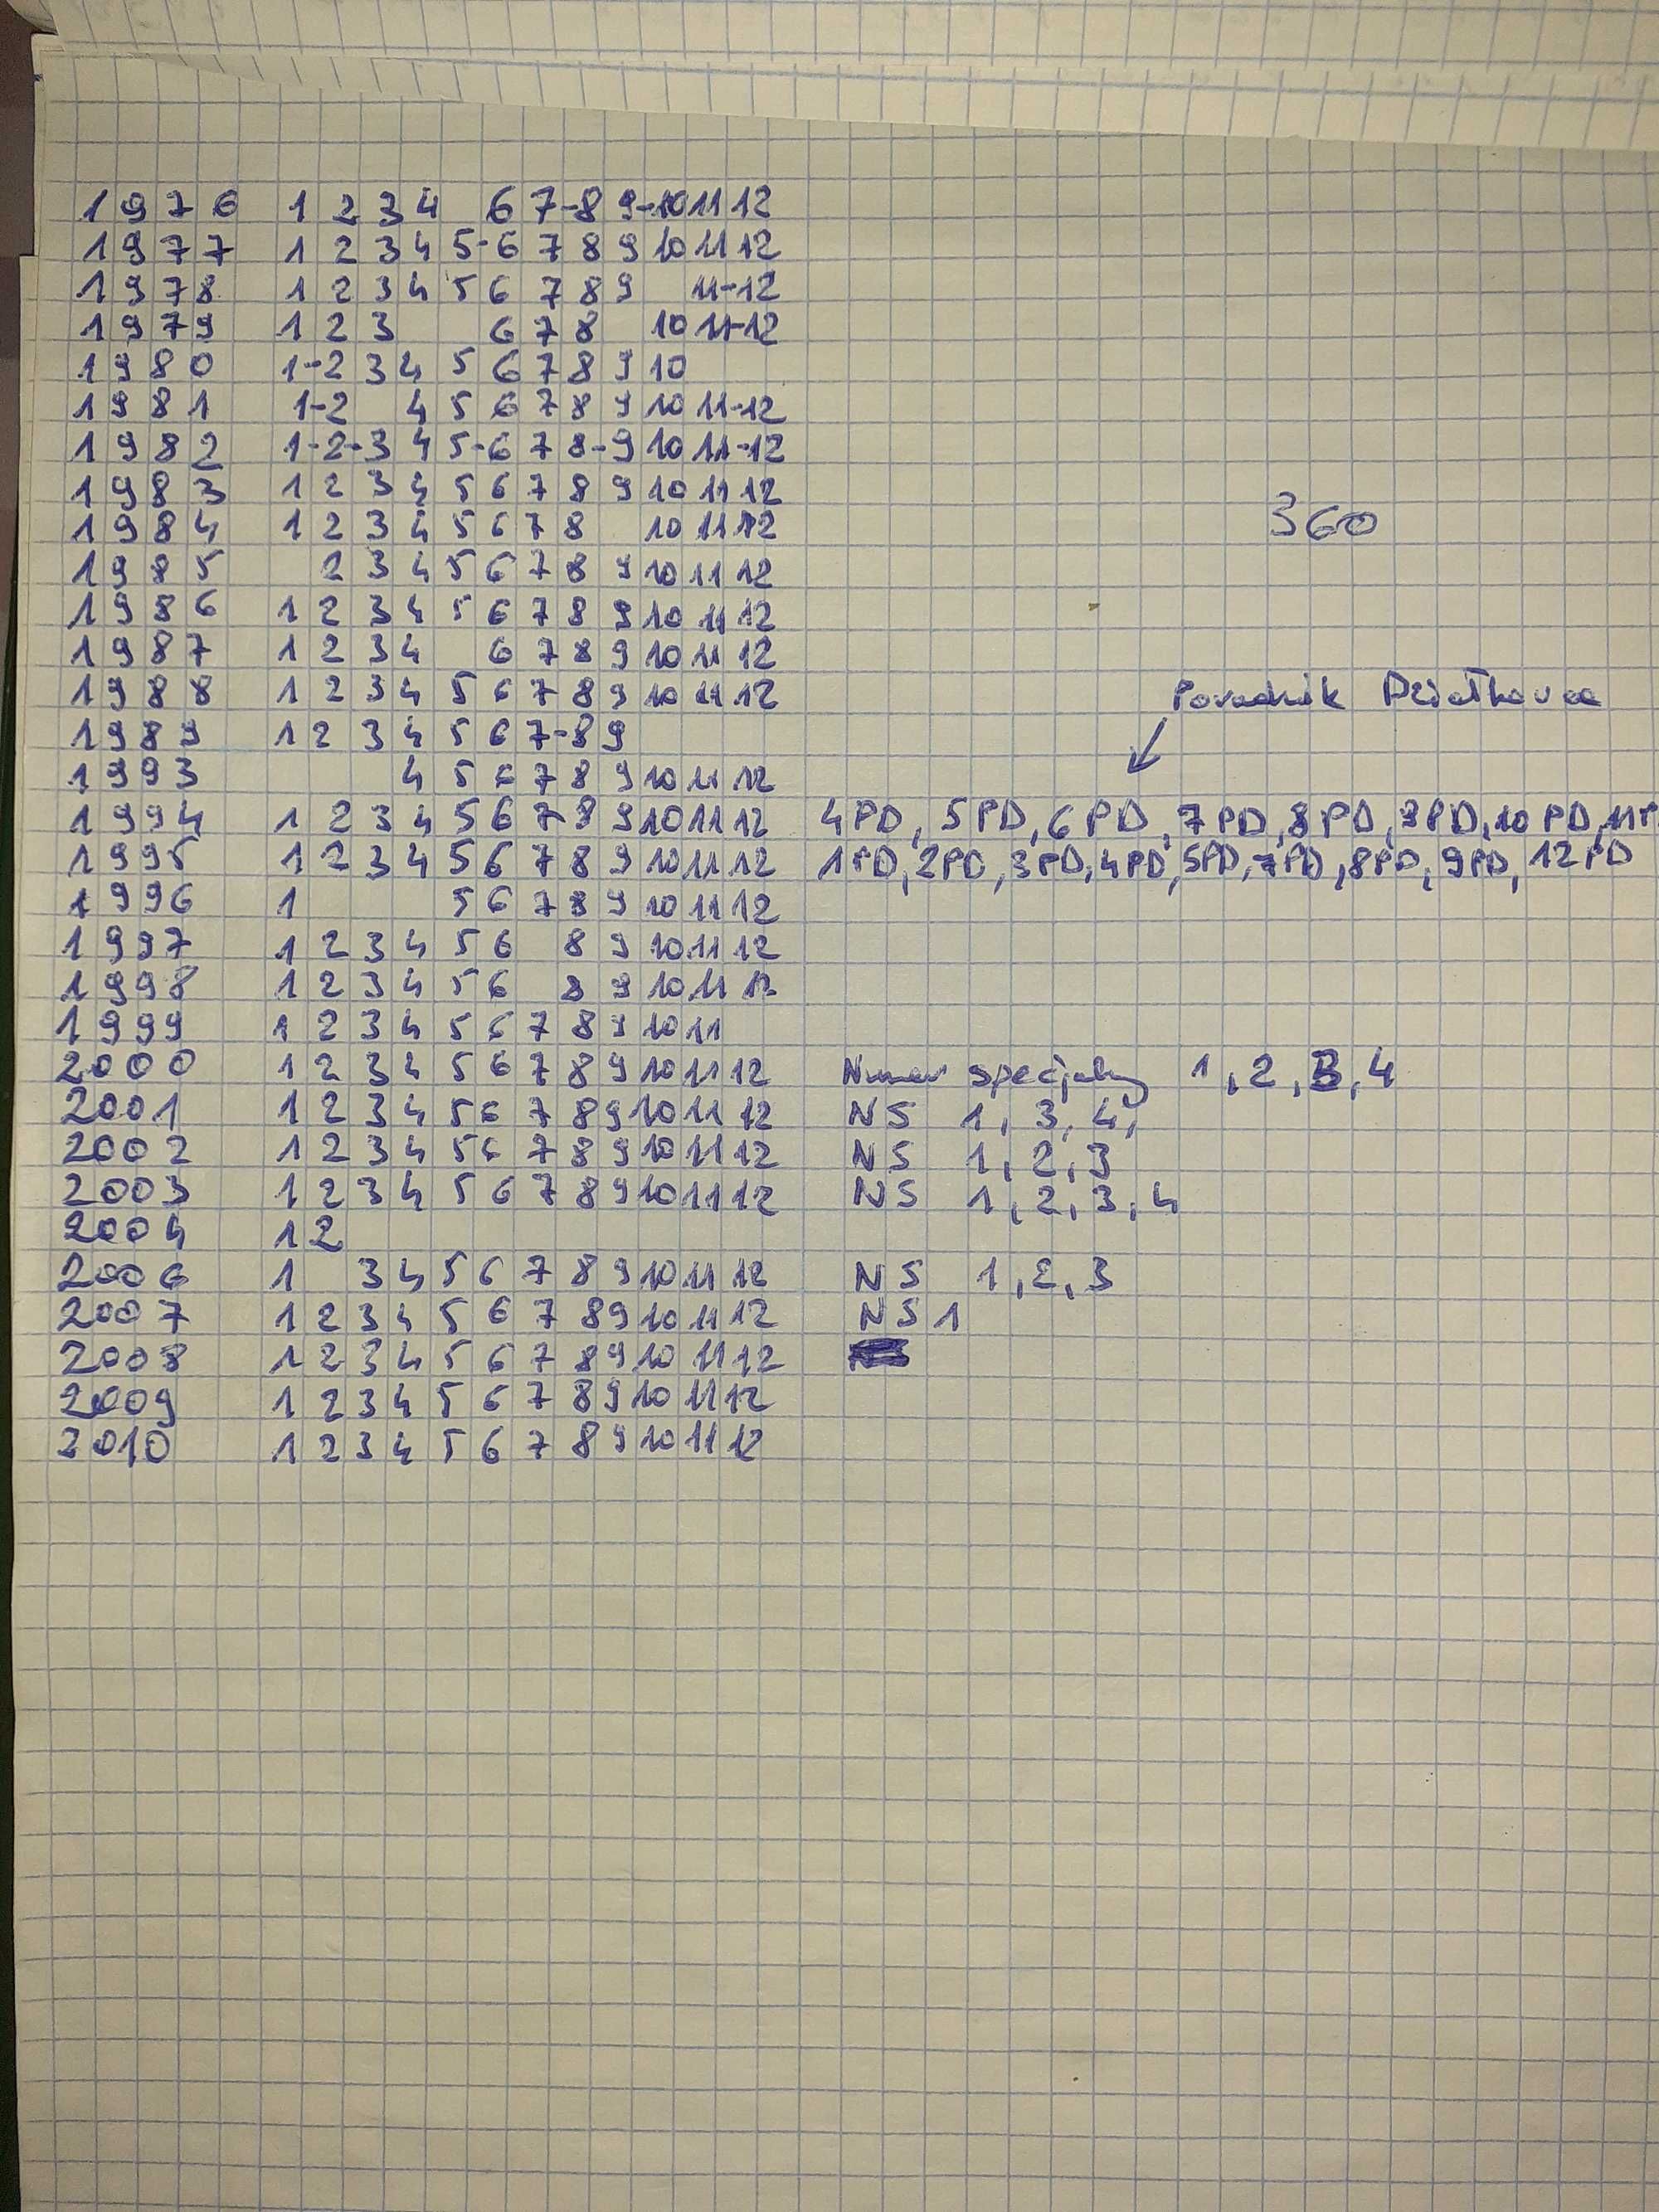 1976 1 2 3 4 6 7-8 9-10 11 12
1977 1 2 3 4 5-6 7 8 9 10 11 12
1978 1 2 3 4 5 6 7 8 9 11-12
1979 1 2 3 6 7 8 10 11-12
1980 1-2 3 4 5 6 7 8 9 10
1981 1-2 4 5 6 7 8 9 10 11-12
1982 1-2-3 4 5-6 7 8-9 10 11-12
1983 1 2 3 4 5 6 7 8 9 10 11 12
360
1984 1 2 3 4 5 6 7 8 10 11 12
1985 2 3 4 5 6 7 8 9 10 11 12
1986 1 2 3 4 5 6 7 8 9 10 11 12
1987 1 2 3 4 6 7 8 9 10 11 12
1988 1 2 3 4 5 6 7 8 9 10 11 12
Poradnik Działkowca
1989 1 2 3 4 5 6 7-8 9
1993 4 5 6 7 8 9 10 11 12
1994 1 2 3 4 5 6 7 8 9 10 11 12 4PD, 5PD, 6PD, 7PD, 8PD, 9PD, 10PD, 11P
1995 1 2 3 4 5 6 7 8 9 10 11 12 1PD, 2PD, 3PD, 4PD, 5PD, 7PD, 8PD, 9PD, 12PD
1996 1 5 6 7 8 9 10 11 12
1997 1 2 3 4 5 6 8 9 10 11 12
1998 1 2 3 4 5 6 8 9 10 11 12
1999 1 2 3 4 5 6 7 8 9 10 11
2000 1 2 3 4 5 6 7 8 9 10 11 12 Numer specjalny 1, 2, 3, 4
2001 1 2 3 4 5 6 7 8 9 10 11 12 NS 1, 3, 4,
2002 1 2 3 4 5 6 7 8 9 10 11 12 NS 1, 2, 3
2003 1 2 3 4 5 6 7 8 9 10 11 12 NS 1, 2, 3, 4
2004 1 2
2006 1 3 4 5 6 7 8 9 10 11 12 NS 1, 2, 3
2007 1 2 3 4 5 6 7 8 9 10 11 12 NS 1
2008 1 2 3 4 5 6 7 8 9 10 11 12
2009 1 2 3 4 5 6 7 8 9 10 11 12
2010 1 2 3 4 5 6 7 8 9 10 11 12